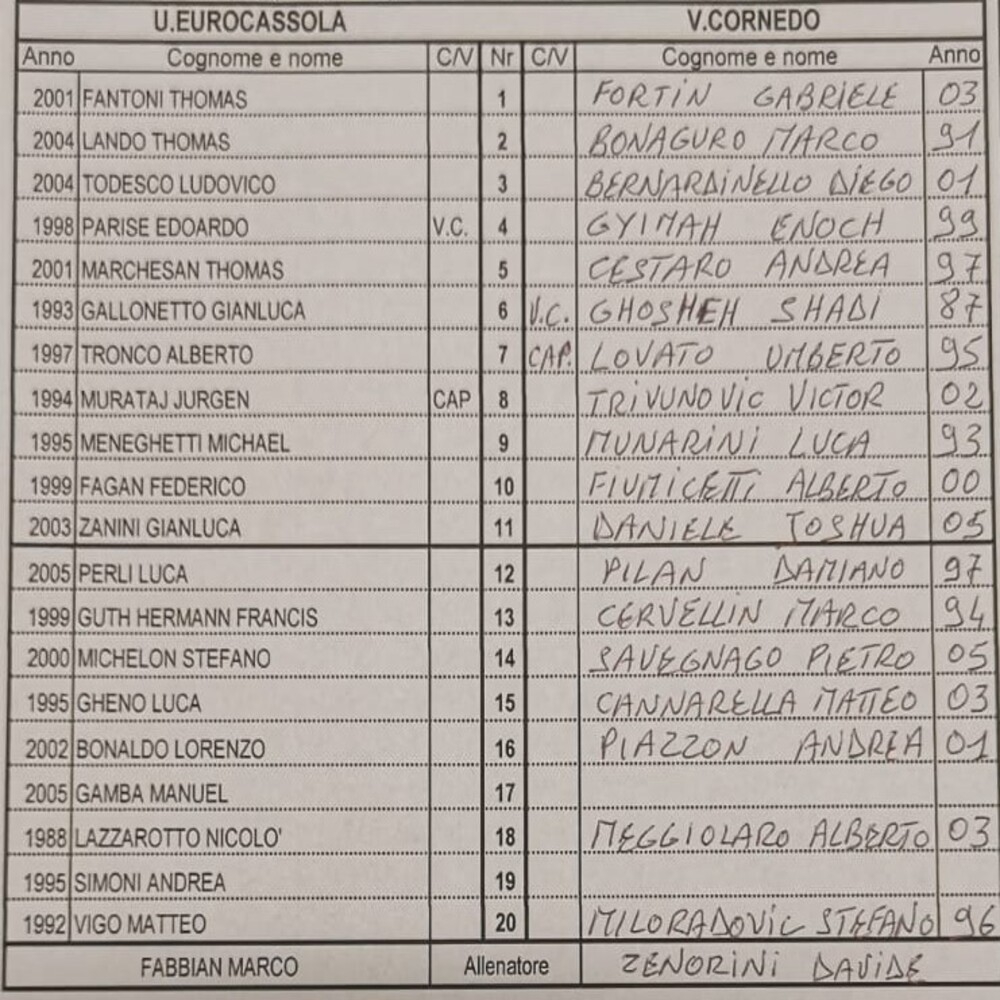 U.EUROCASSOLA V.CORNEDO
Anno Cognome e nome C/V Nr C/V Cognome e nome Anno
2001 FANTONI THOMAS 1 FORTIN GABRIELE 03
2004 LANDO THOMAS 2 BONAGURO MARCO 91
2004 TODESCO LUDOVICO 3 BERNARDINELLO DIEGO 01
1998 PARISE EDOARDO V.C. 4 GYIMAH ENOCH 99
2001 MARCHESAN THOMAS 5 CESTARO ANDREA 97
1993 GALLONETTO GIANLUCA 6 V.C. GHOSHEH SHADI 87
1997 TRONCO ALBERTO 7 CAP. LOVATO UMBERTO 95
1994 MURATAJ JURGEN CAP 8 TRIVUNOVIC VICTOR 02
1995 MENEGHETTI MICHAEL 9 MUNARINI LUCA 93
1999 FAGAN FEDERICO 10 FIUMICETTI ALBERTO 00
2003 ZANINI GIANLUCA 11 DANIELE JOSHUA 05
2005 PERLI LUCA 12 PILAN DAMIANO 97
1999 GUTH HERMANN FRANCIS 13 CERVELLIN MARCO 94
2000 MICHELON STEFANO 14 SAVEGNAGO PIETRO 05
1995 GHENO LUCA 15 CANNARELLA MATTEO 03
2002 BONALDO LORENZO 16 PIAZZON ANDREA 01
2005 GAMBA MANUEL 17
1988 LAZZAROTTO NICOLO' 18 MEGGIOLARO ALBERTO 03
1995 SIMONI ANDREA 19
1992 VIGO MATTEO 20 MILORADOVIC STEFANO 96
FABBIAN MARCO Allenatore ZENORINI DAVIDE